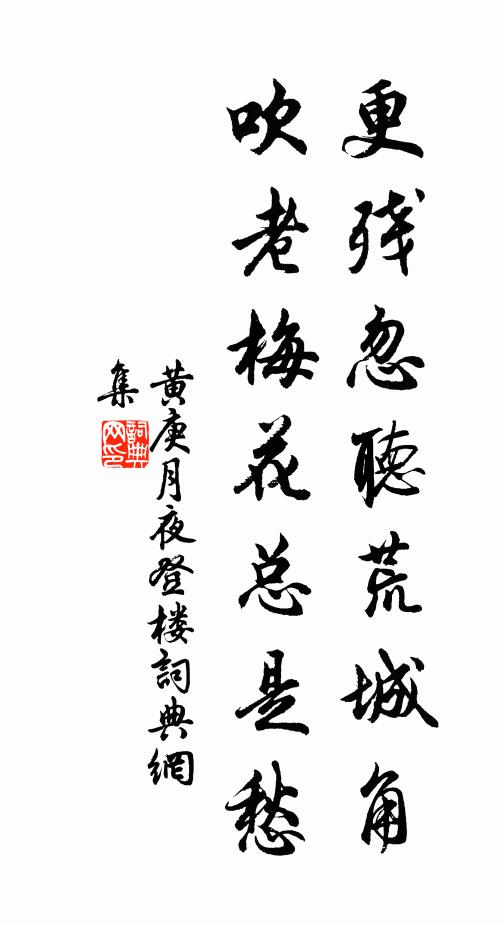 更残忽聽荒城角
吹老梅花总是愁
黄庚月夜登楼詞典網
集
詞典
网印